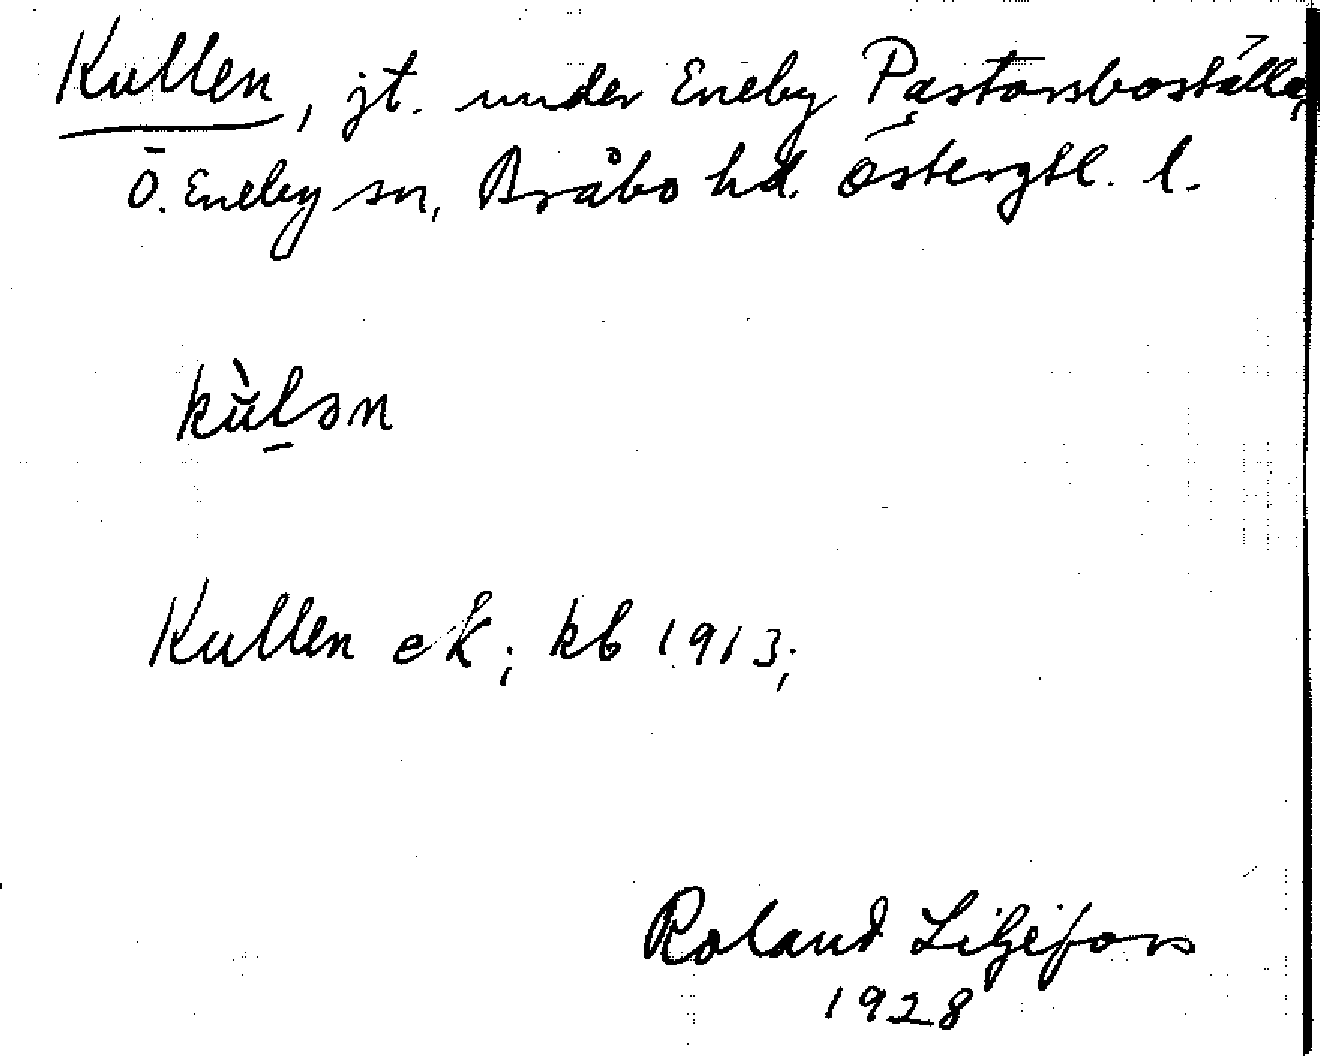 Kullen, jt. under Eneby Pastorsboställe,
Ö. Eneby sn, Bråbo hd. Östergtl. l.
kùl̠ən
Kullen ek; kb 1913;
Roland Liljefors
1928